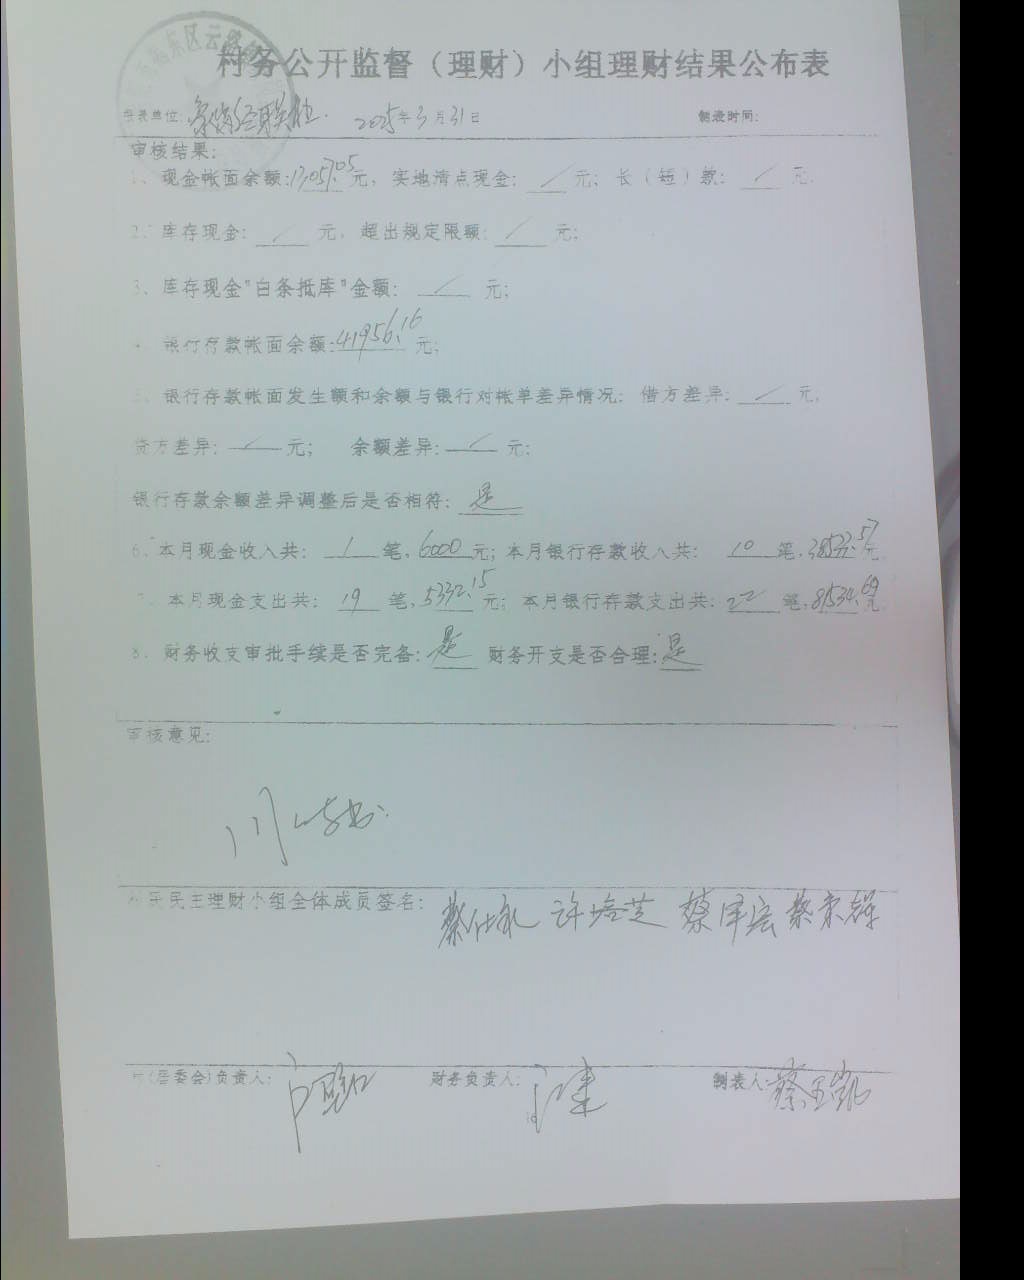 村务公开监督（理财）小组理财结果公布表
单位: 经联社 2025年3月31日 制表时间:
审核结果:
1、现金帐面余额:17,057.05元，实地清点现金: / 元；长（短）款: / 元.
2、库存现金: / 元，超出规定限额: / 元;
3、库存现金"白条抵库"金额: / 元;
银行存款帐面余额:41956.16元;
银行存款帐面发生额和余额与银行对帐单差异情况: 借方差异: / 元,
贷方差异: / 元; 余额差异: / 元;
银行存款余额差异调整后是否相符: 是
6、本月现金收入共: 1 笔,6000元;本月银行存款收入共: 10 笔, 元
本月现金支出共: 19 笔,5332.15元; 本月银行存款支出共: 22 笔,8534.69元
8、财务收支审批手续是否完备:是 财务开支是否合理:是
审核意见:
民主理财小组全体成员签名: 蔡仕礼 许培芝 蔡泽宏 蔡东辉
(居委会)负责人: 财务负责人: 制表人:蔡